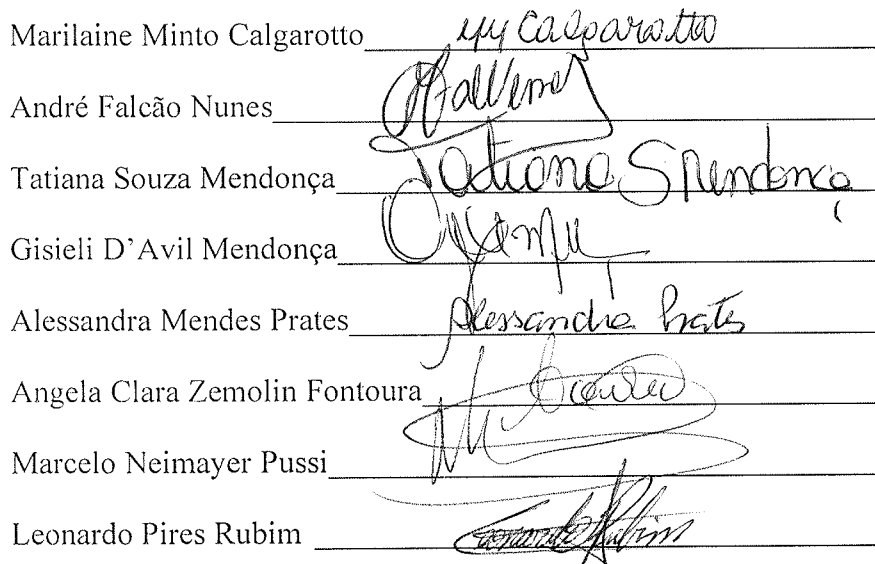 Marilaine Minto Calgarotto Calgarotto
André Falcão Nunes
Tatiana Souza Mendonça Tatiana S Mendonça
Gisieli D'Avil Mendonça
Alessandra Mendes Prates Alessandra Prates
Angela Clara Zemolin Fontoura
Marcelo Neimayer Pussi
Leonardo Pires Rubim Leonardo Rubim